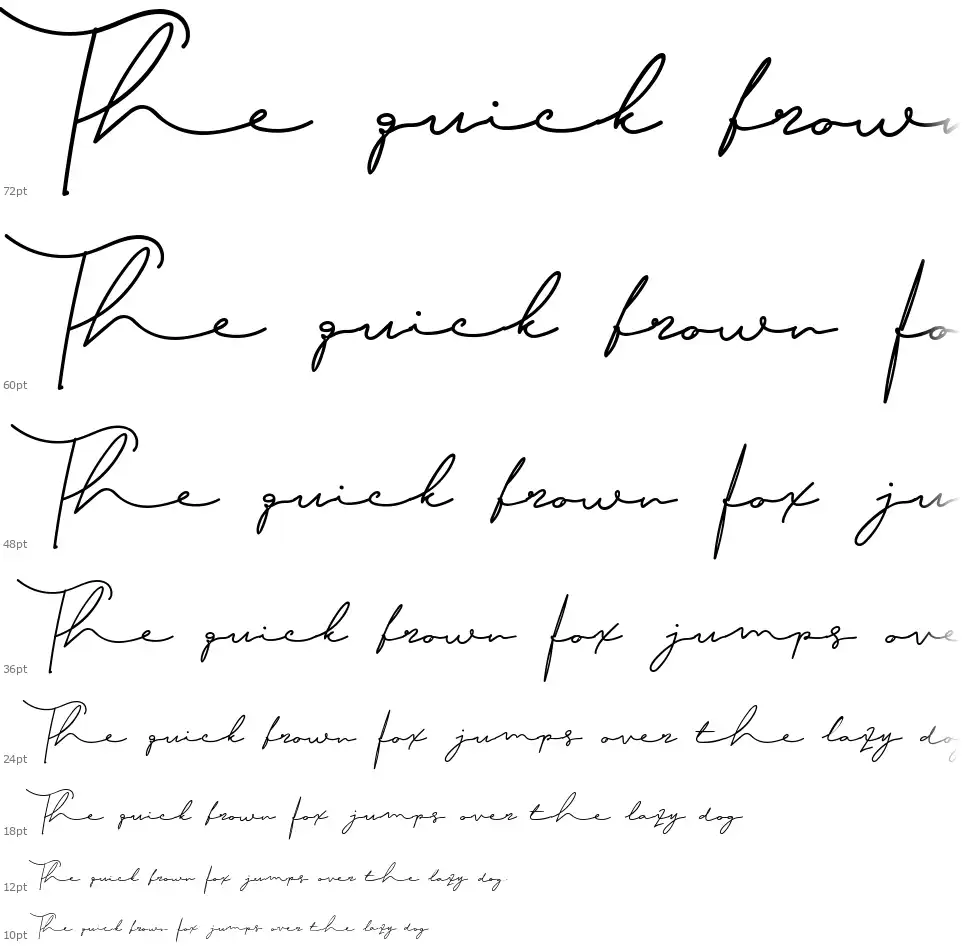 The quick brown
72pt
The quick brown fo
60pt
The quick brown fox ju
48pt
The quick brown fox jumps ove
36pt
The quick brown fox jumps over the lazy do
24pt
The quick brown fox jumps over the lazy dog
18pt
The quick brown fox jumps over the lazy dog.
12pt
The quick brown fox jumps over the lazy dog
10pt